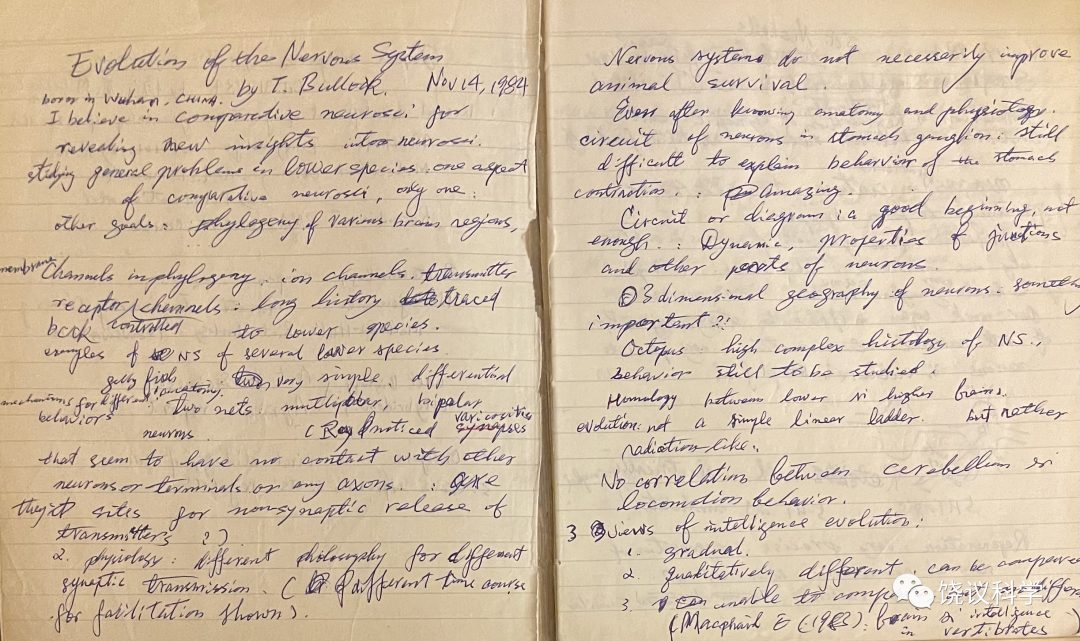 Evolution of the Nervous System
by T. Bullock. Nov 14, 1984
born in Wuhan, CHINA.
I believe in comparative neurosci for
revealing new insights into neurosci.
studying general problems in lower species: one aspect
of comparative neurosci, only one:
other goals: phylogeny of various brain regions,
membrane
Channels in phylogeny. ion channels. transmitter
receptor/channels: long history traced
controlled
back to lower species.
examples of NS of several lower species.
jelly fish: very simple. differential
mechanisms for different anatomy.
behaviors two nets: multipolar, bipolar
neurons. ( noticed varicosities synapses
that seem to have no contact with other
neurons or terminals or any axons. : are
they sites for nonsynaptic release of
transmitters ?)
2. physiology: different philosophy for different
synaptic transmission. ( different time course
for facilitation shown).
Nervous systems do not necessarily improve
animal survival.
Even after knowing anatomy and physiology.
circuit of neurons in stomach ganglion: still
difficult to explain behavior of the stomach
contraction: Amazing.
Circuit or diagram: a good beginning, not
enough.: Dynamic, properties of junctions
and other parts of neurons.
3 dimensional geography of neurons.
important?!
Octopus high complex histology of NS.,
behavior still to be studied.
Homology between lower vs higher brains.
evolution: not a simple linear ladder. but rather
radiation-like.
No correlation between cerebellum vs
locomotion behavior.
3 views of intelligence evolution:
1. gradual.
2. qualitatively different, can be compared
3. unable to
(Macphail E (1982): brain & intelligence
in vertibrates)
饶议科学